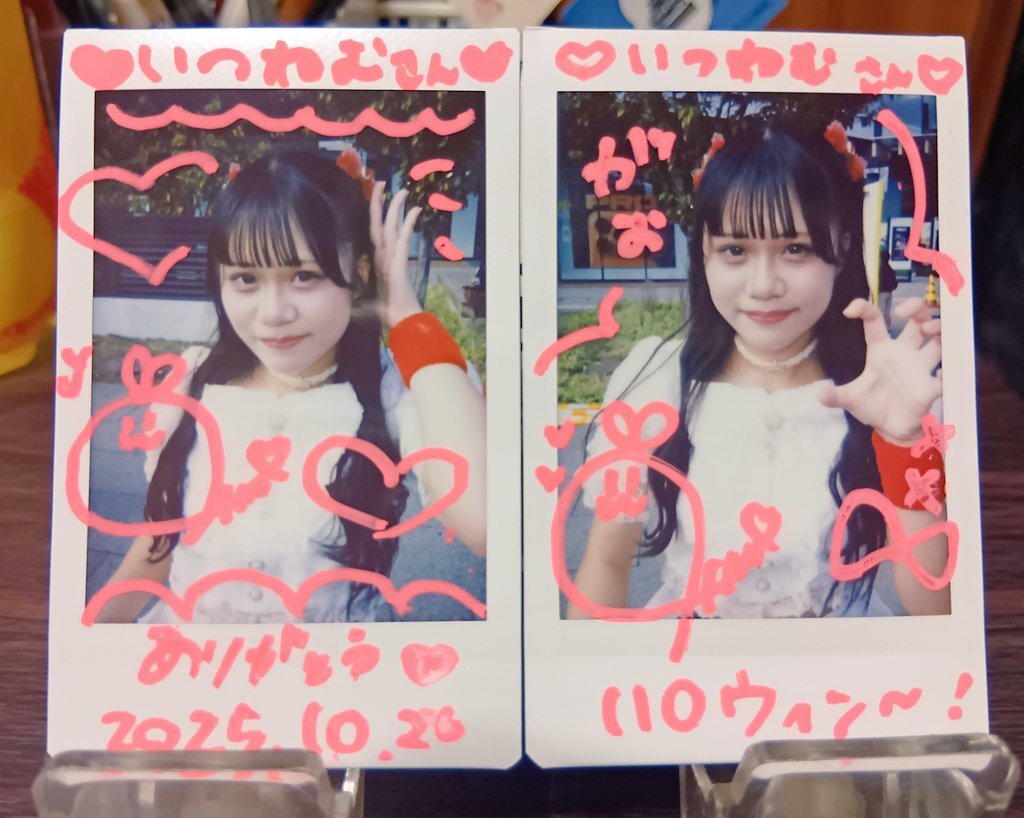 ♡いつわむさん♡
ありがとう♡
2025.10.26
♡いつわむさん♡
がお
ハロウィン〜!